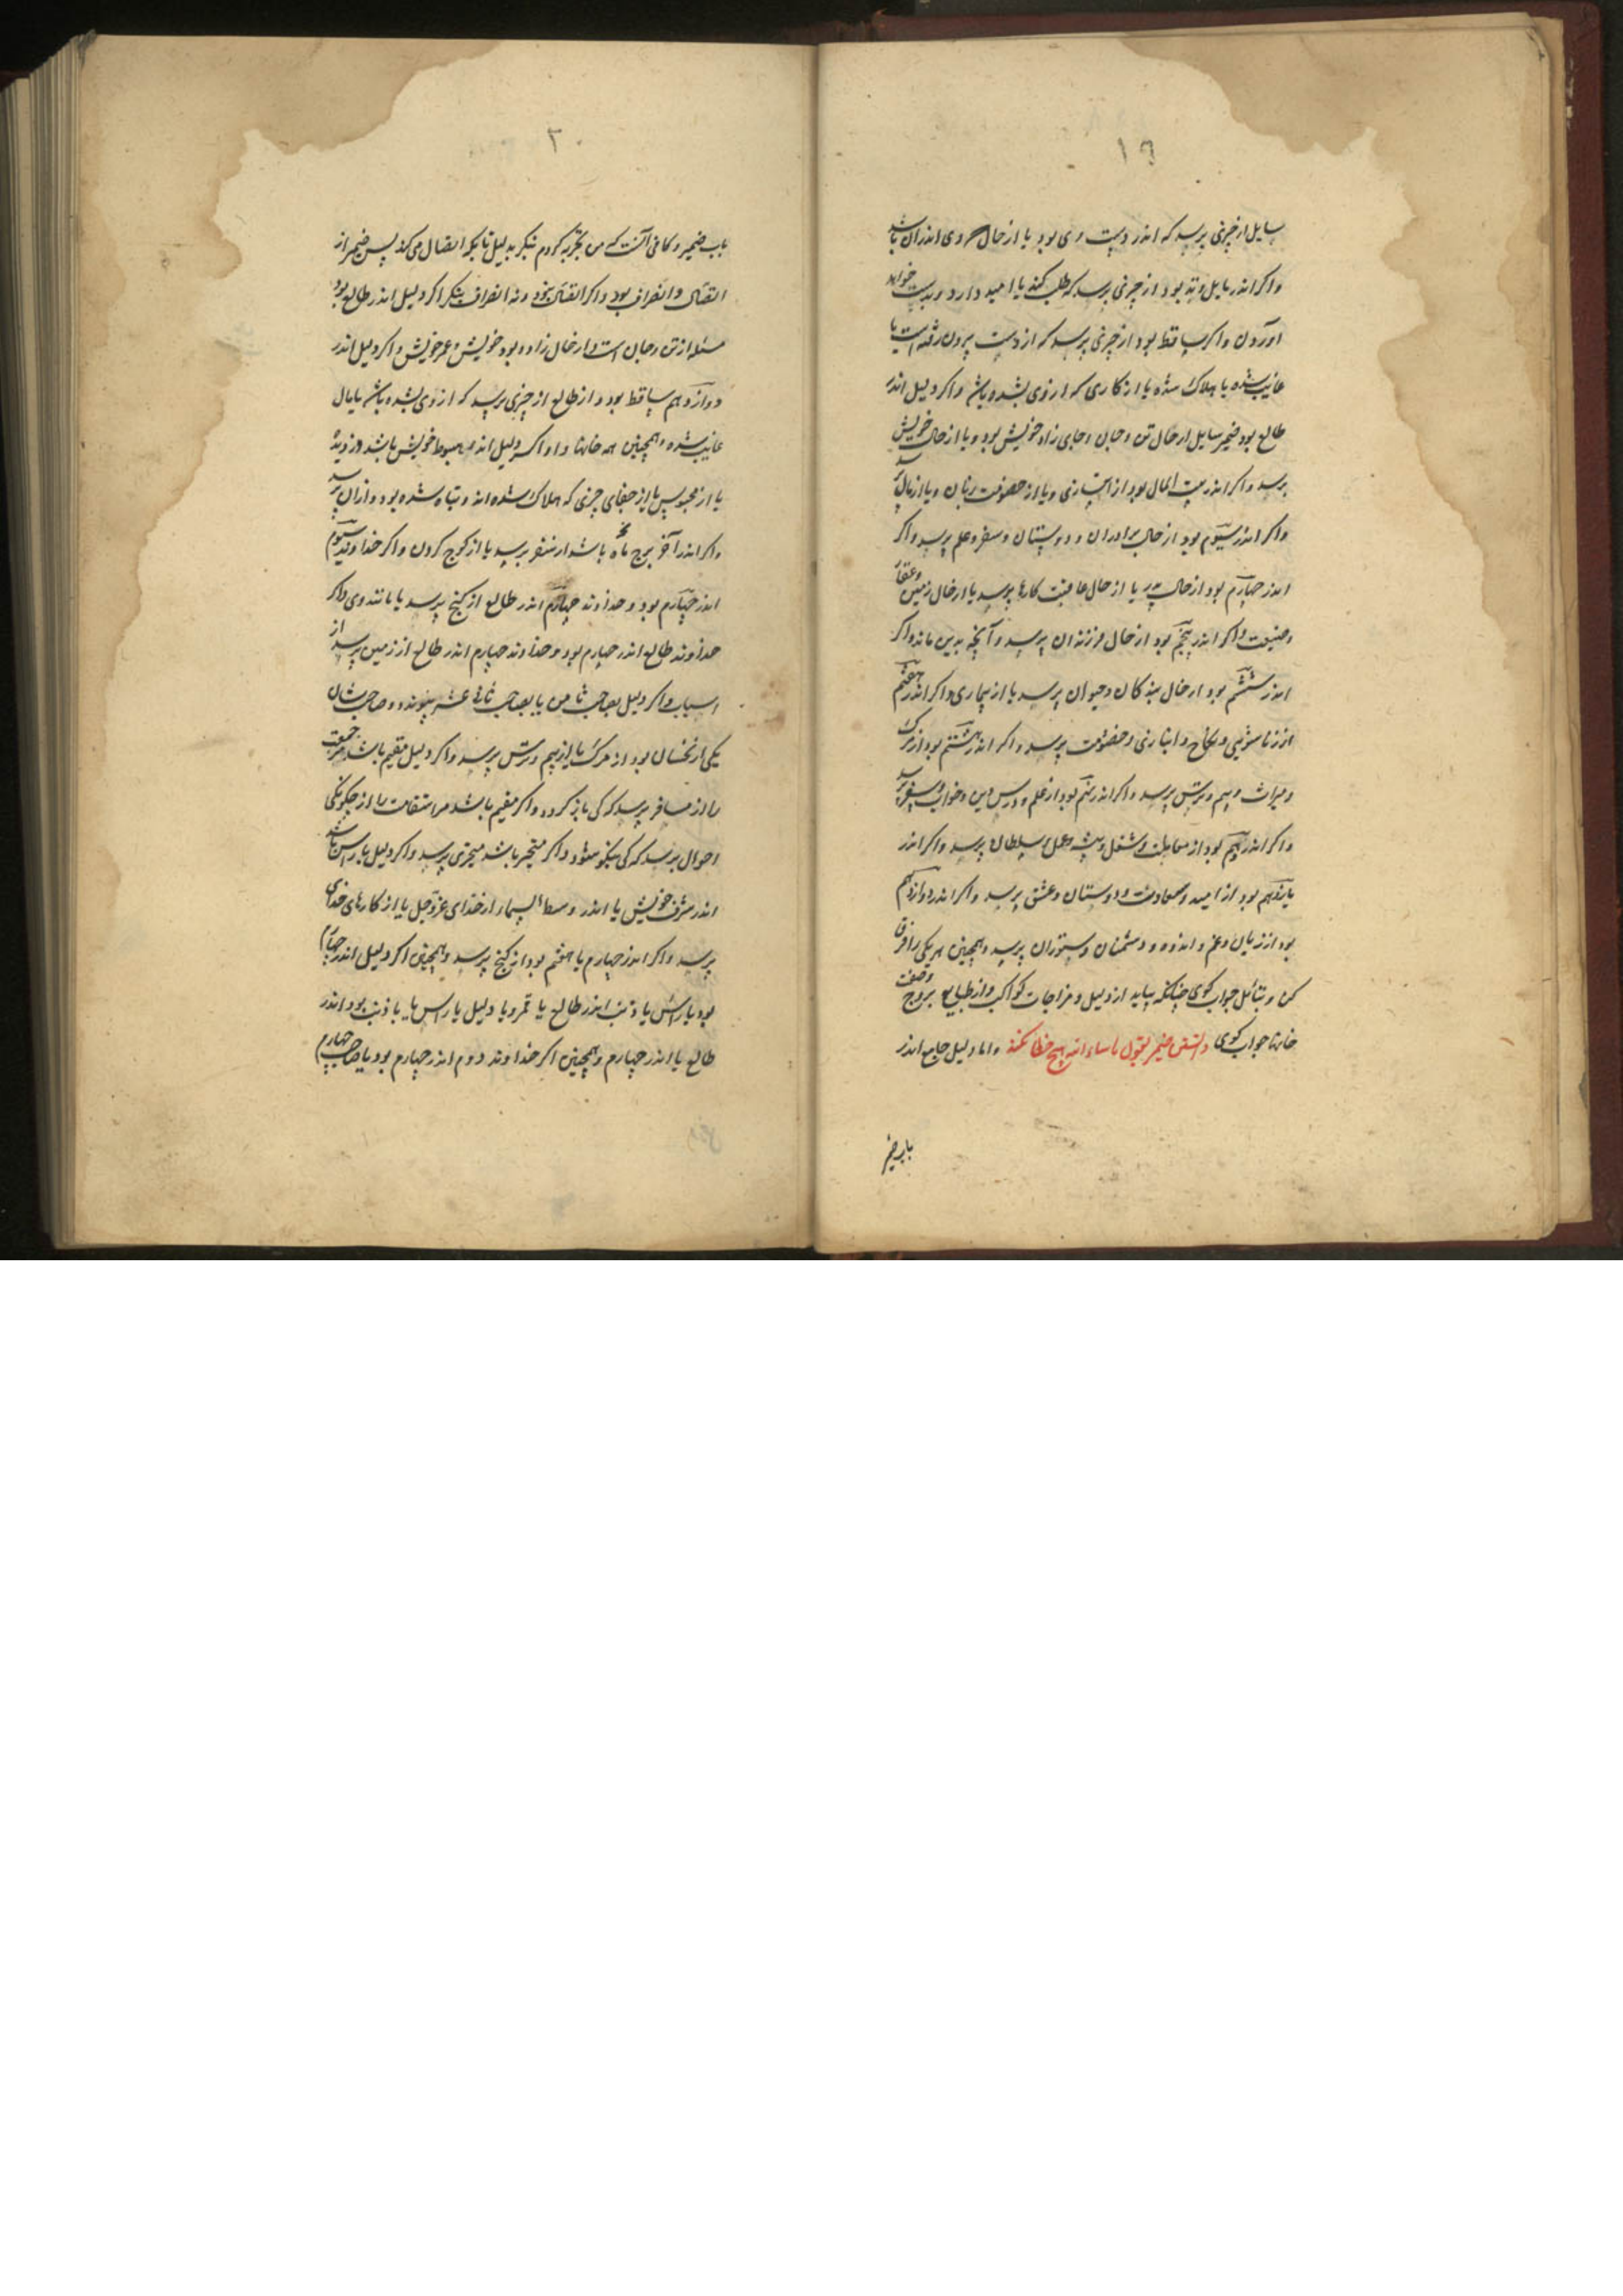 ۱۹
سایل از چیزی پرسد که اندر دست وی بود یا از حال وی اندران باشد
واکر اندر مایل وتد بود از چیزی پرسد که طلب کند یا امید دارد و بدست خواهد
آوردن واکر ساقط بود از چیزی پرسد که از دست بیرون رفته است یا
غایب شده یا هلاک شده یا از کاری که از وی بشده باشد واکر دلیل اندر
طالع بود ضمیر سایل از حال تن و جان و جای زاد خویش بود و یا از حال خویش
پرسد واکر اندر بیت المال بود از انبازی و یا از خصومت زنان و یا از مال پرسد
واکر اندر سیوم بود از حال برادران و دوستان و سفر و علم پرسد واکر
اندر چهارم بود از حال پدر یا از حال عاقبت کارها پرسد یا از حال زمین و عقار
وضیعت واکر اندر پنجم بود از حال فرزندان پرسد و آنچه بدین ماند واکر
اندر ششم بود از حال بندکان و حیوان پرسد یا از بیماری واکر اندر هفتم
از زناشوئی و نکاح و انبازی و خصومت پرسد واکر اندر هشتم بود از مرک
و میراث و بیم و ترس پرسد واکر اندر نهم بود از علم و درس دین و خواب و سفر پرسد
واکر اندر دهم بود از معاملت و شغل و پیشه و عمل سلطان پرسد واکر اندر
یازدهم بود از امید و سعادت و دوستان و عشق پرسد واکر اندر دوازدهم
بود از زیان و غم و اندوه و دشمنان و ستوران پرسد و همچنین هر یکی را فرق
کن و بتأمل جواب کوی چنانکه بیاید از دلیل و مزاجات کواکب و از طبایع بروج وصفت
خانها جواب کوی دانستن ضمیر بقول ماشاء الله هیچ خطا نکند واما دلیل جامع اندر
باب ضمیر
۲۰
باب ضمیر و کافی آنست که من تجربه کردم بنکر بدلیل تا بکه اتصال می‌کند پس ضمیر از
اتصال و انصراف بود واکر اتصال نبود و نه انصراف بنکر اکر دلیل اندر طالع بود
مسئله از تن و جان است و از حال زاد و بود خویش و عمر خویش واکر دلیل اندر
دوازدهم ساقط بود و از طالع از چیزی پرسد که از وی بشده باشد یا مال
غایب شده و همچنین همه خانها واکر دلیل اندر هبوط خویش باشد از دزدیده
یا از محبوس یا از جفای چیزی که هلاک شده اند و تباه شده بود و از آن پرسد
واکر اندر آخر برج ماه باشد از سفر پرسد یا از کوچ کردن واکر خداوند سیوم
اندر چهارم بود و خداوند چهارم اندر طالع از کنج پرسد یا مانند وی واکر
خداوند طالع اندر چهارم بود و خداوند چهارم اندر طالع از زمین پرسد از
اسباب واکر دلیل بصاحب ثامن یا بصاحب ثانی عشر پیوندد و صاحبشان
یکی از نحسان بود از مرک یا از بیم و ترس پرسد واکر دلیل مقیم باشد مر رجعت
را از مسافر پرسد که کی باز کردد واکر مقیم باشد مر استقامت را از چکونکی
احوال پرسد که کی نیکو شود واکر متحیر باشد متحیری پرسد واکر دلیل با رأس باشد
اندر شرف خویش یا اندر وسط السماء از خدای عزوجل یا از کارهای خدای
پرسد واکر اندر چهارم یا هفتم بود از کنج پرسد و همچنین اکر دلیل اندر چهارم
بود با رأس یا ذنب اندر طالع یا قمر و یا دلیل با رأس یا با ذنب بود اندر
طالع یا اندر چهارم و همچنین اکر خداوند دوم اندر چهارم بود یا صاحب چهارم